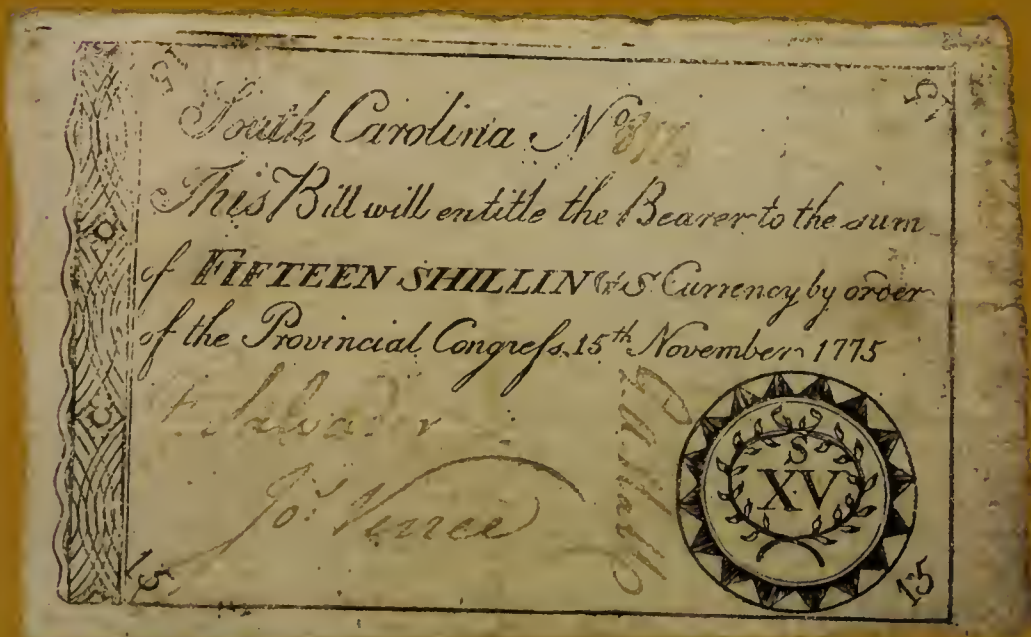 15
15
South Carolina Nº
This Bill will entitle the Bearer to the sum
of FIFTEEN SHILLINGS Currency by order
of the Provincial Congreſs 15th November 1775
Salvador
Jos. Verree
S
XV
15
15